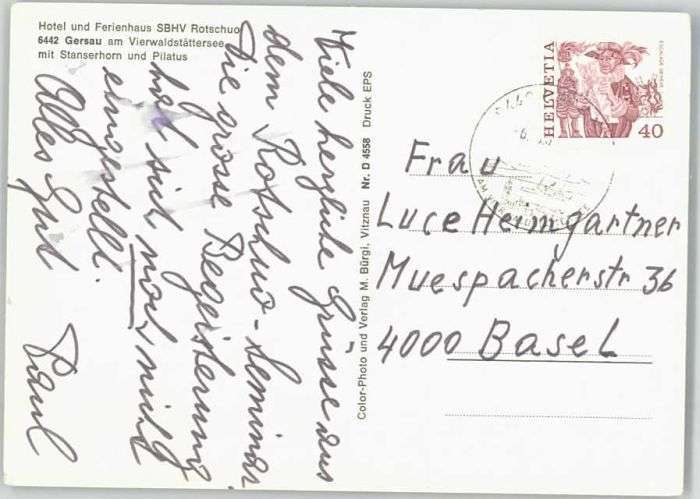 Hotel und Ferienhaus SBHV Rotschuo
6442 Gersau am Vierwaldstättersee
mit Stanserhorn und Pilatus
Viele herzliche Grüsse aus
dem Rotschuo-Seminar
Die grosse Begeisterung
hat sich noch nicht
eingestellt.
Alles Gut
Paul
Color-Photo und Verlag M. Bürgi, Vitznau Nr. D 4558 Druck EPS
HELVETIA
40
Frau
Luce Heimgartner
Muespacherstr 36
4000 Basel